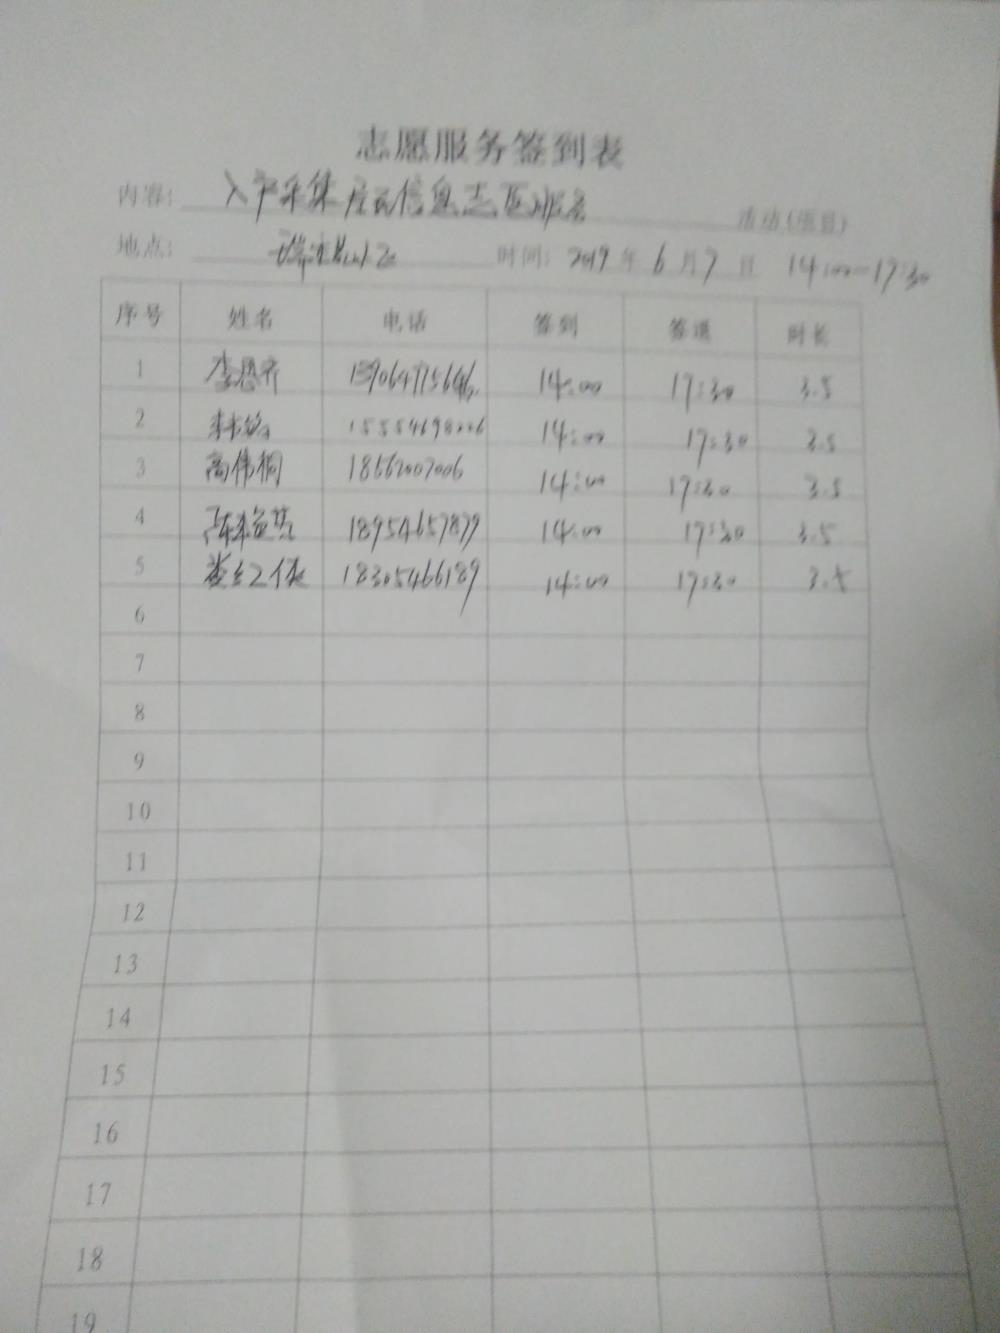 志愿服务签到表
内容: 入户采集居民信息志愿服务 活动(项目)
地点: 小区 时间: 2019 年 6 月 7 日 14:00-17:30
序号 姓名 电话 签到 签退 时长
1 李恩齐 15906477564 14:00 17:30 3.5
2 1555469 14:00 17:30 3.5
3 高伟桐 18562007006 14:00 17:30 3.5
4 18954657879 14:00 17:30 3.5
5 18305466189 14:00 17:30 3.5
6
7
8
9
10
11
12
13
14
15
16
17
18
19